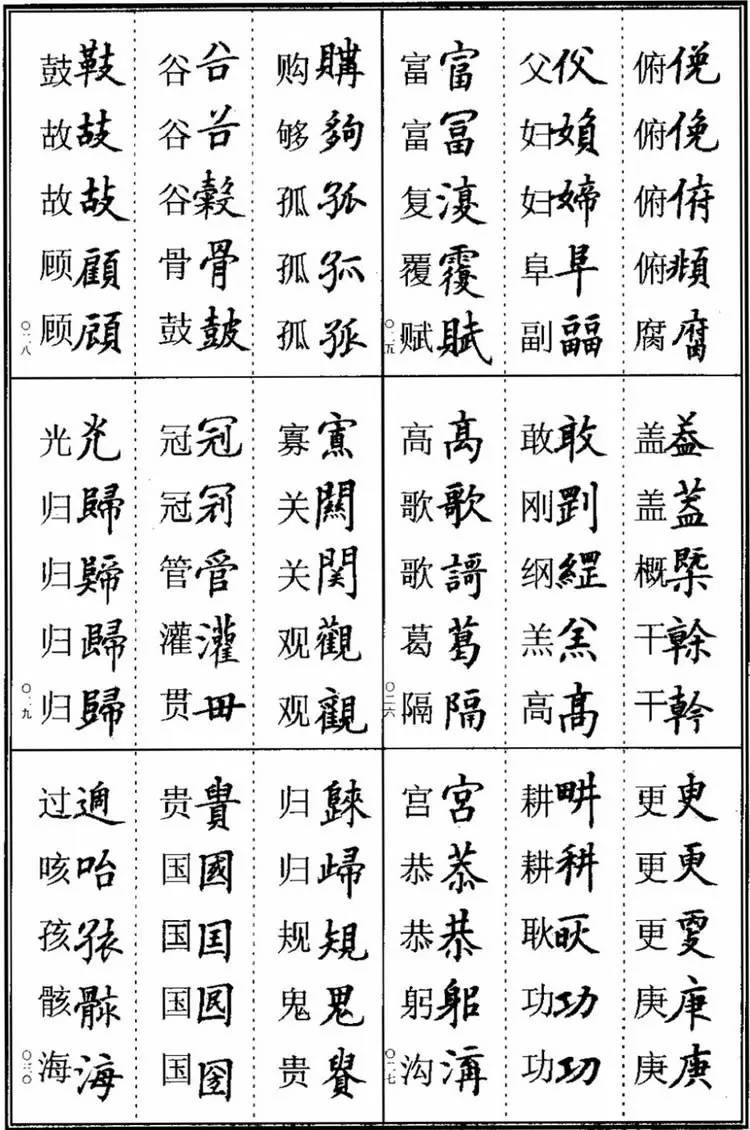 俯俛
俯俛
俯俯
俯頫
腐腐
父
妇媍
妇婦
阜阜
副
富富
富冨
复
覆覆
赋賦
〇二五
盖葢
盖蓋
概槩
干榦
干幹
敢敢
刚
纲
羔羔
高高
高髙
歌歌
歌謌
葛葛
隔隔
〇二六
更更
更更
更
庚庚
庚庚
耕畊
耕耕
耿
功功
功功
宫宮
恭恭
恭恭
躬躳
沟溝
〇二七
购購
够夠
孤孤
孤孤
孤孤
谷谷
谷谷
谷穀
骨骨
鼓皷
鼓鼓
故故
故故
顾顧
顾顧
〇二八
寡
关關
关関
观觀
观觀
冠冠
冠
管管
灌灌
贯毌
光光
归歸
归
归歸
归歸
〇二九
归
归歸
规規
鬼鬼
贵
贵貴
国國
国囯
国
国
过過
咳咍
孩
骸骸
海海
〇三〇